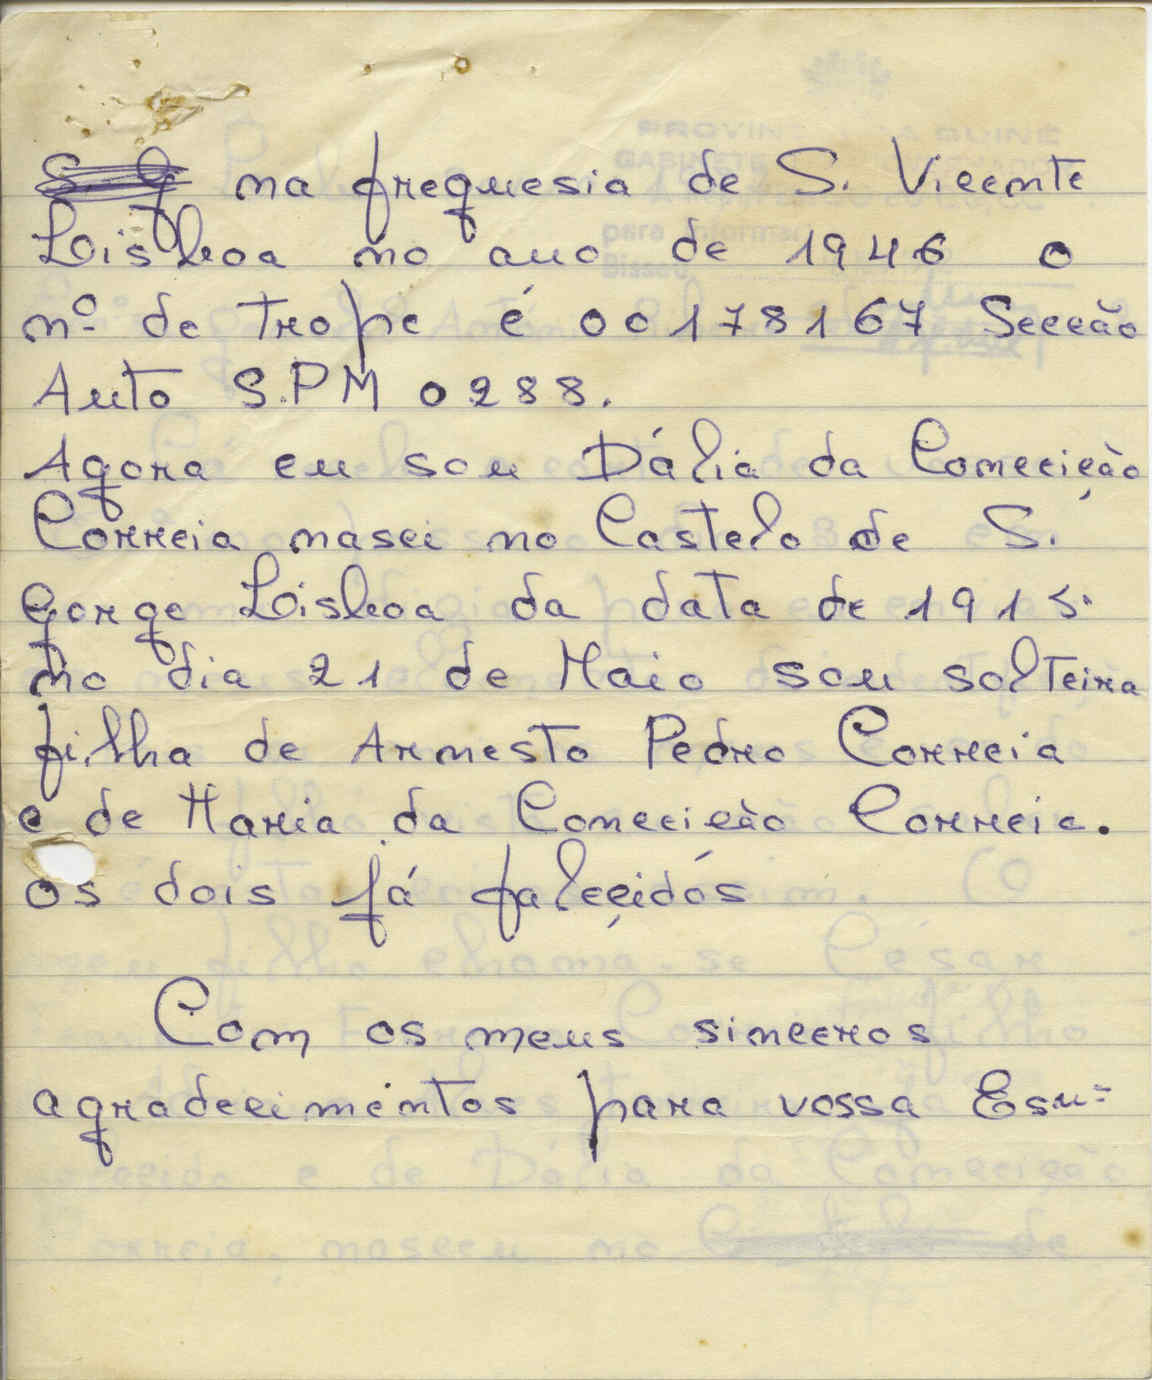 ~~S. G~~ na freguesia de S. Vicente
Lisboa no ano de 1946 o
nº de trope é 00178167 Secção
Auto S.P.M 0288.
Agora eu sou Dália da Comecicão
Correia nasci no Castelo de S.
gorge Lisboa da data de 1915.
no dia 21 de Maio sou solteira
filha de Arnesto Pedro Correia
e de Maria da Comecieão Correia.
os dois já faleçidos
Com os meus sinceros
agradecimentos para vossa